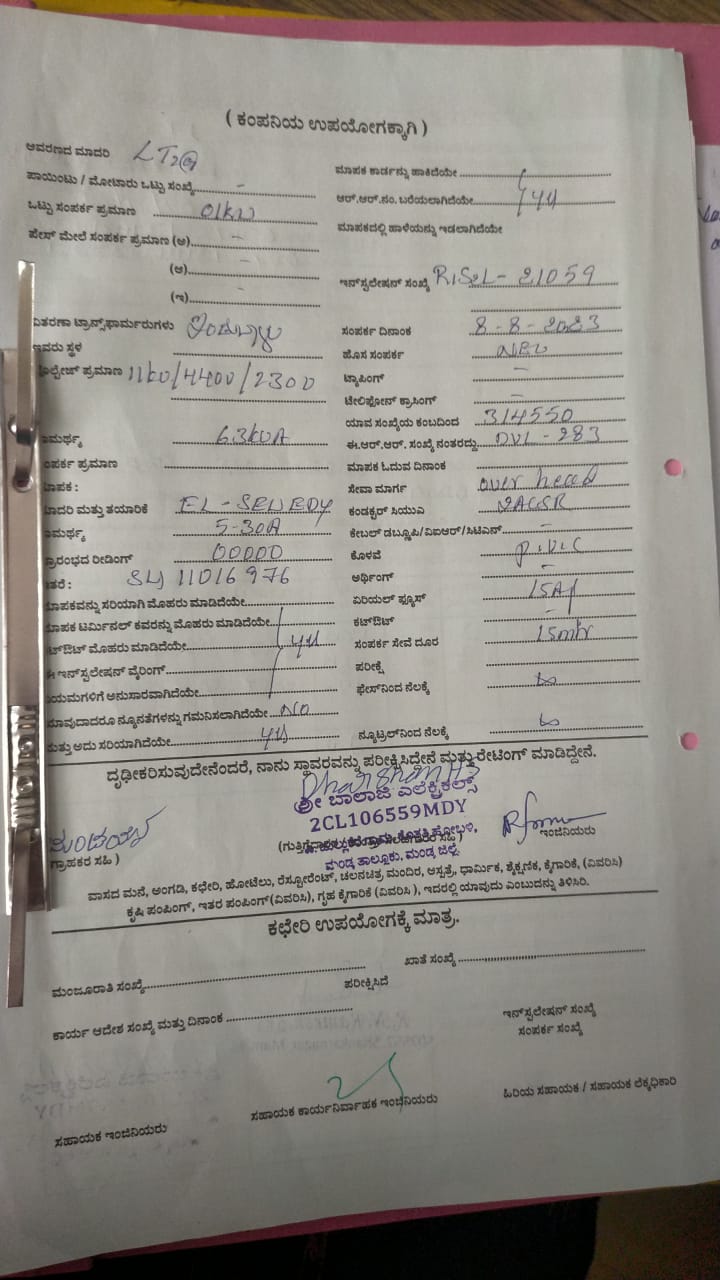 ( ಕಂಪನಿಯ ಉಪಯೋಗಕ್ಕಾಗಿ )
ಆವರಣದ ಮಾದರಿ LT2(a)
ಪಾಯಿಂಟು / ಮೋಟಾರು ಒಟ್ಟು ಸಂಖ್ಯೆ -
ಒಟ್ಟು ಸಂಪರ್ಕ ಪ್ರಮಾಣ 01kw
ಪೇಸ್ ಮೇಲೆ ಸಂಪರ್ಕ ಪ್ರಮಾಣ (ಅ) -
(ಆ) -
(ಇ) -
ವಿತರಣಾ ಟ್ರಾನ್ಸ್‌ಫಾರ್ಮರುಗಳು
ಇವರು ಸ್ಥಳ
ಪ್ರಮಾಣ 11kv/4400/2300
ಾಮರ್ಥ್ಯ 63kVA
ಂಪರ್ಕ ಪ್ರಮಾಣ
ಾಪಕ :
ಮಾದರಿ ಮತ್ತು ತಯಾರಿಕೆ EL-
ಾಮರ್ಥ್ಯ 5-30A
ಪ್ರಾರಂಭದ ರೀಡಿಂಗ್ 00000
ಇತರೆ : 11016976
ಮಾಪಕವನ್ನು ಸರಿಯಾಗಿ ಮೊಹರು ಮಾಡಿದೆಯೇ
ಮಾಪಕ ಟರ್ಮಿನಲ್ ಕವರನ್ನು ಮೊಹರು ಮಾಡಿದೆಯೇ
ಕಟ್‌ಔಟ್ ಮೊಹರು ಮಾಡಿದೆಯೇ
ಇನ್‌ಸ್ಟಲೇಷನ್ ವೈರಿಂಗ್
ನಿಯಮಗಳಿಗೆ ಅನುಸಾರವಾಗಿದೆಯೇ
ಯಾವುದಾದರೂ ನ್ಯೂನತೆಗಳನ್ನು ಗಮನಿಸಲಾಗಿದೆಯೇ No
ಮತ್ತು ಅದು ಸರಿಯಾಗಿದೆಯೇ
ಮಾಪಕ ಕಾರ್ಡನ್ನು ಹಾಕಿದೆಯೇ
ಆರ್.ಆರ್.ನಂ. ಬರೆಯಲಾಗಿದೆಯೇ
ಮಾಪಕದಲ್ಲಿ ಹಾಳೆಯನ್ನು ಇಡಲಾಗಿದೆಯೇ
ಇನ್‌ಸ್ಟಲೇಷನ್ ಸಂಖ್ಯೆ 21059
ಸಂಪರ್ಕ ದಿನಾಂಕ 8-8-2023
ಹೊಸ ಸಂಪರ್ಕ NEW
ಟ್ಯಾಪಿಂಗ್ -
ಟೆಲಿಫೋನ್ ಕ್ರಾಸಿಂಗ್ -
ಯಾವ ಸಂಖ್ಯೆಯ ಕಂಬದಿಂದ 314550
ಈ.ಆರ್.ಆರ್. ಸಂಖ್ಯೆ ನಂತರದ್ದು DVL-283
ಮಾಪಕ ಓದುವ ದಿನಾಂಕ -
ಸೇವಾ ಮಾರ್ಗ over head
ಕಂಡಕ್ಟರ್ ಸಿಯುಎ ACSR
ಕೇಬಲ್ ಡಬ್ಲ್ಯೂಪಿ/ವಿಐಆರ್/ಸಿಟಿಎಸ್ -
ಕೊಳವೆ P.V.C
ಅರ್ಥಿಂಗ್ -
ಏರಿಯಲ್ ಫ್ಯೂಸ್
ಕಟ್‌ಔಟ್
ಸಂಪರ್ಕ ಸೇವೆ ದೂರ 15mtr
ಪರೀಕ್ಷೆ
ಫೇಸ್‌ನಿಂದ ನೆಲಕ್ಕೆ ∞
ನ್ಯೂಟ್ರಲ್‌ನಿಂದ ನೆಲಕ್ಕೆ ∞
ದೃಢೀಕರಿಸುವುದೇನೆಂದರೆ, ನಾನು ಸ್ಥಾವರವನ್ನು ಪರೀಕ್ಷಿಸಿದ್ದೇನೆ ಮತ್ತು ರೇಟಿಂಗ್ ಮಾಡಿದ್ದೇನೆ.
ಶ್ರೀ ಬಾಲಾಜಿ ಎಲೆಕ್ಟ್ರಿಕಲ್ಸ್
2CL106559MDY
ಮಂಡ್ಯ ತಾಲ್ಲೂಕು, ಮಂಡ್ಯ ಜಿಲ್ಲೆ.
ಗ್ರಾಹಕರ ಸಹಿ )
ಇಂಜಿನಿಯರು
ವಾಸದ ಮನೆ, ಅಂಗಡಿ, ಕಛೇರಿ, ಹೋಟೆಲು, ರೆಸ್ಟೋರೆಂಟ್, ಚಲನಚಿತ್ರ ಮಂದಿರ, ಆಸ್ಪತ್ರೆ, ಧಾರ್ಮಿಕ, ಶೈಕ್ಷಣಿಕ, ಕೈಗಾರಿಕೆ, (ವಿವರಿಸಿ)
ಕೃಷಿ ಪಂಪಿಂಗ್, ಇತರ ಪಂಪಿಂಗ್(ವಿವರಿಸಿ), ಗೃಹ ಕೈಗಾರಿಕೆ (ವಿವರಿಸಿ ), ಇದರಲ್ಲಿ ಯಾವುದು ಎಂಬುದನ್ನು ತಿಳಿಸಿರಿ.
ಕಛೇರಿ ಉಪಯೋಗಕ್ಕೆ ಮಾತ್ರ.
ಮಂಜೂರಾತಿ ಸಂಖ್ಯೆ
ಖಾತೆ ಸಂಖ್ಯೆ
ಪರೀಕ್ಷಿಸಿದೆ
ಕಾರ್ಯ ಆದೇಶ ಸಂಖ್ಯೆ ಮತ್ತು ದಿನಾಂಕ
ಇನ್‌ಸ್ಟಲೇಷನ್ ಸಂಖ್ಯೆ
ಸಂಪರ್ಕ ಸಂಖ್ಯೆ
ಸಹಾಯಕ ಇಂಜಿನಿಯರು
ಸಹಾಯಕ ಕಾರ್ಯನಿರ್ವಾಹಕ ಇಂಜಿನಿಯರು
ಹಿರಿಯ ಸಹಾಯಕ / ಸಹಾಯಕ ಲೆಕ್ಕಧಿಕಾರಿ